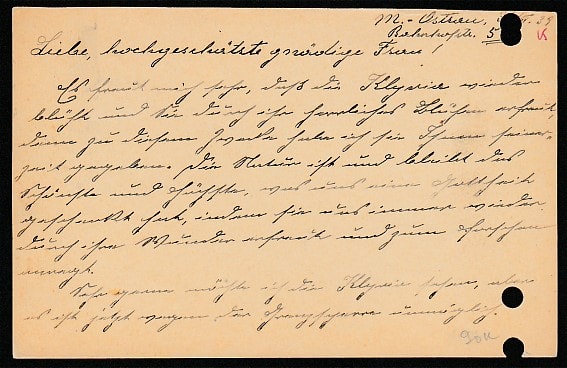 M.-Ostrau, II. 39
Bahnhofstr. 5
Liebe, hochgeschätzte gnädige Frau!
Es freut mich sehr, daß die Klyvia wieder
blüht und Sie durch ihr herrliches Blühen erfreut,
denn zu diesem Zwecke habe ich sie Ihnen seiner-
zeit gegeben. Die Natur ist und bleibt das
Schönste und Höchste, was uns eine Gottheit
geschenkt hat, indem sie uns immer wieder
durch ihre Wunder erfreut und zum Forschen
anregt.
Sehr gerne möchte ich die Klyvia sehen, aber
es ist jetzt wegen der Grenzsperre unmöglich.